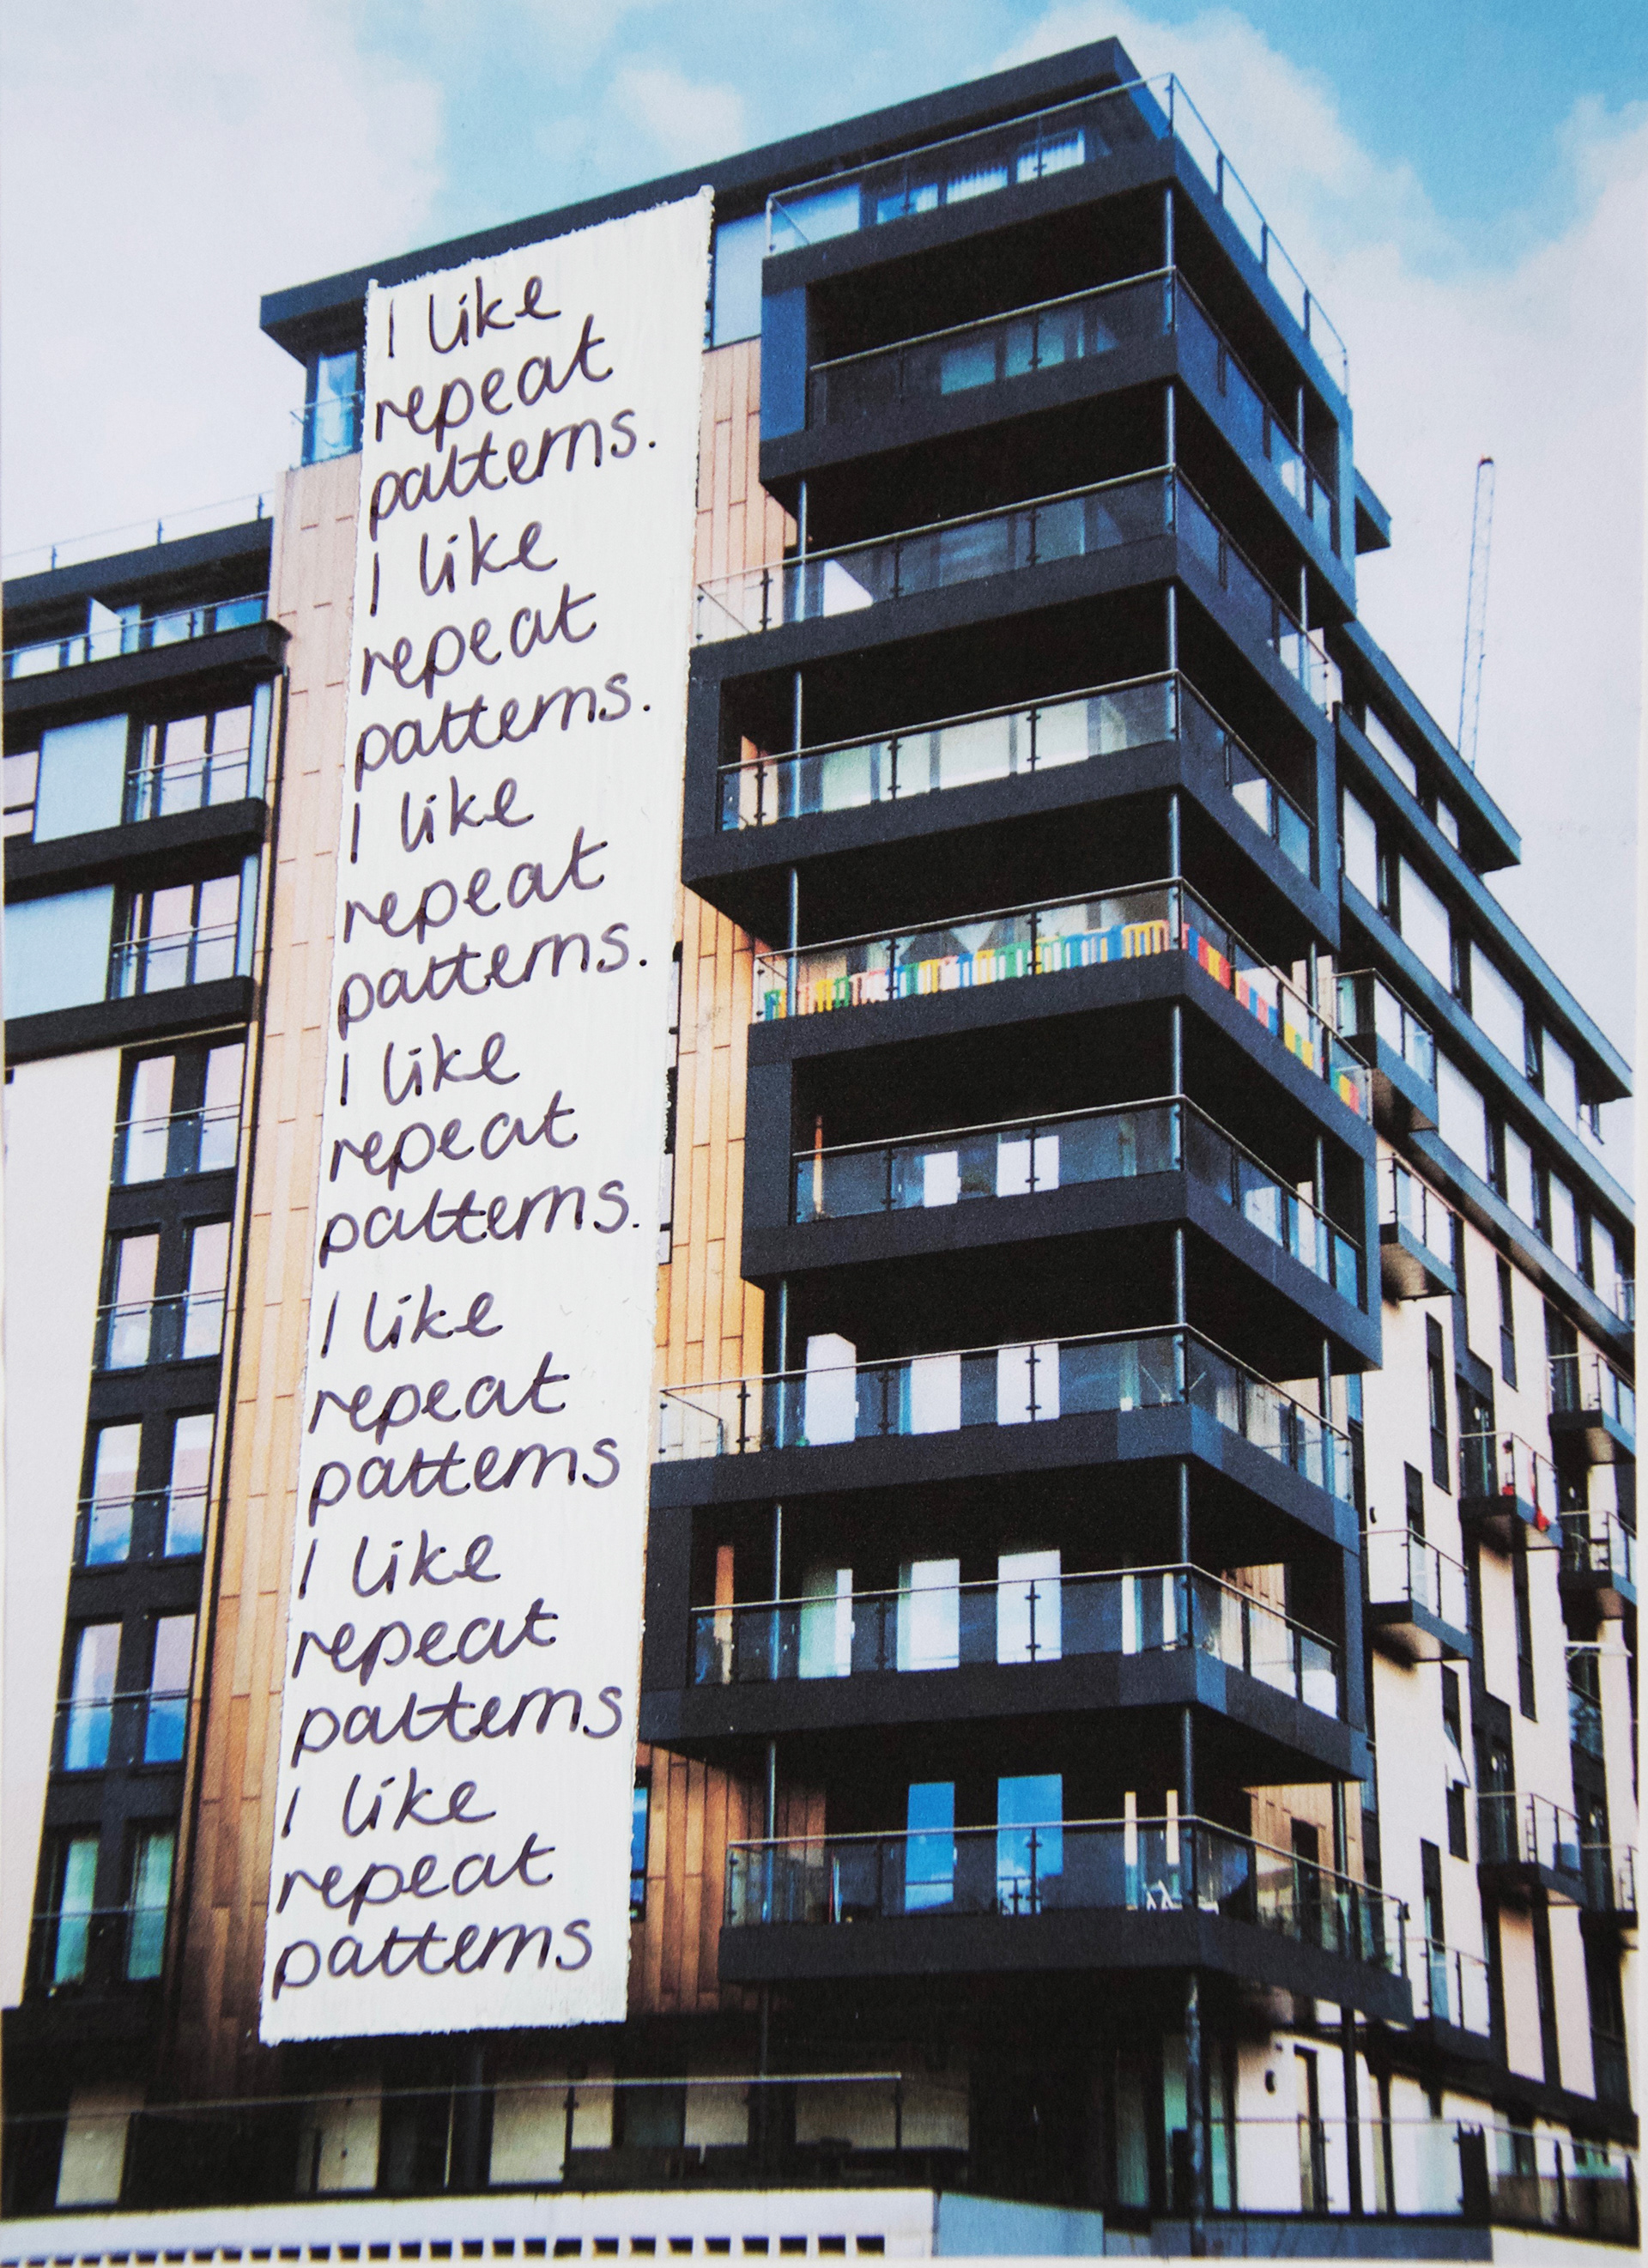 I like
repeat
patterns.
I like
repeat
patterns.
I like
repeat
patterns.
I like
repeat
patterns.
I like
repeat
patterns
I like
repeat
patterns
I like
repeat
patterns